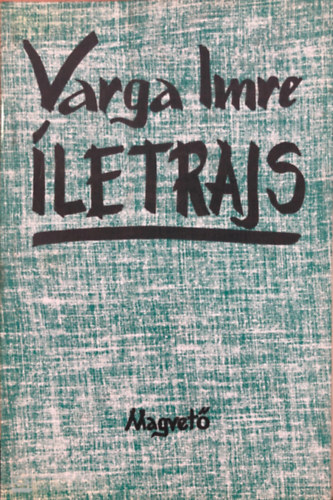 Varga Imre
ÍLETRAJS
Magvető